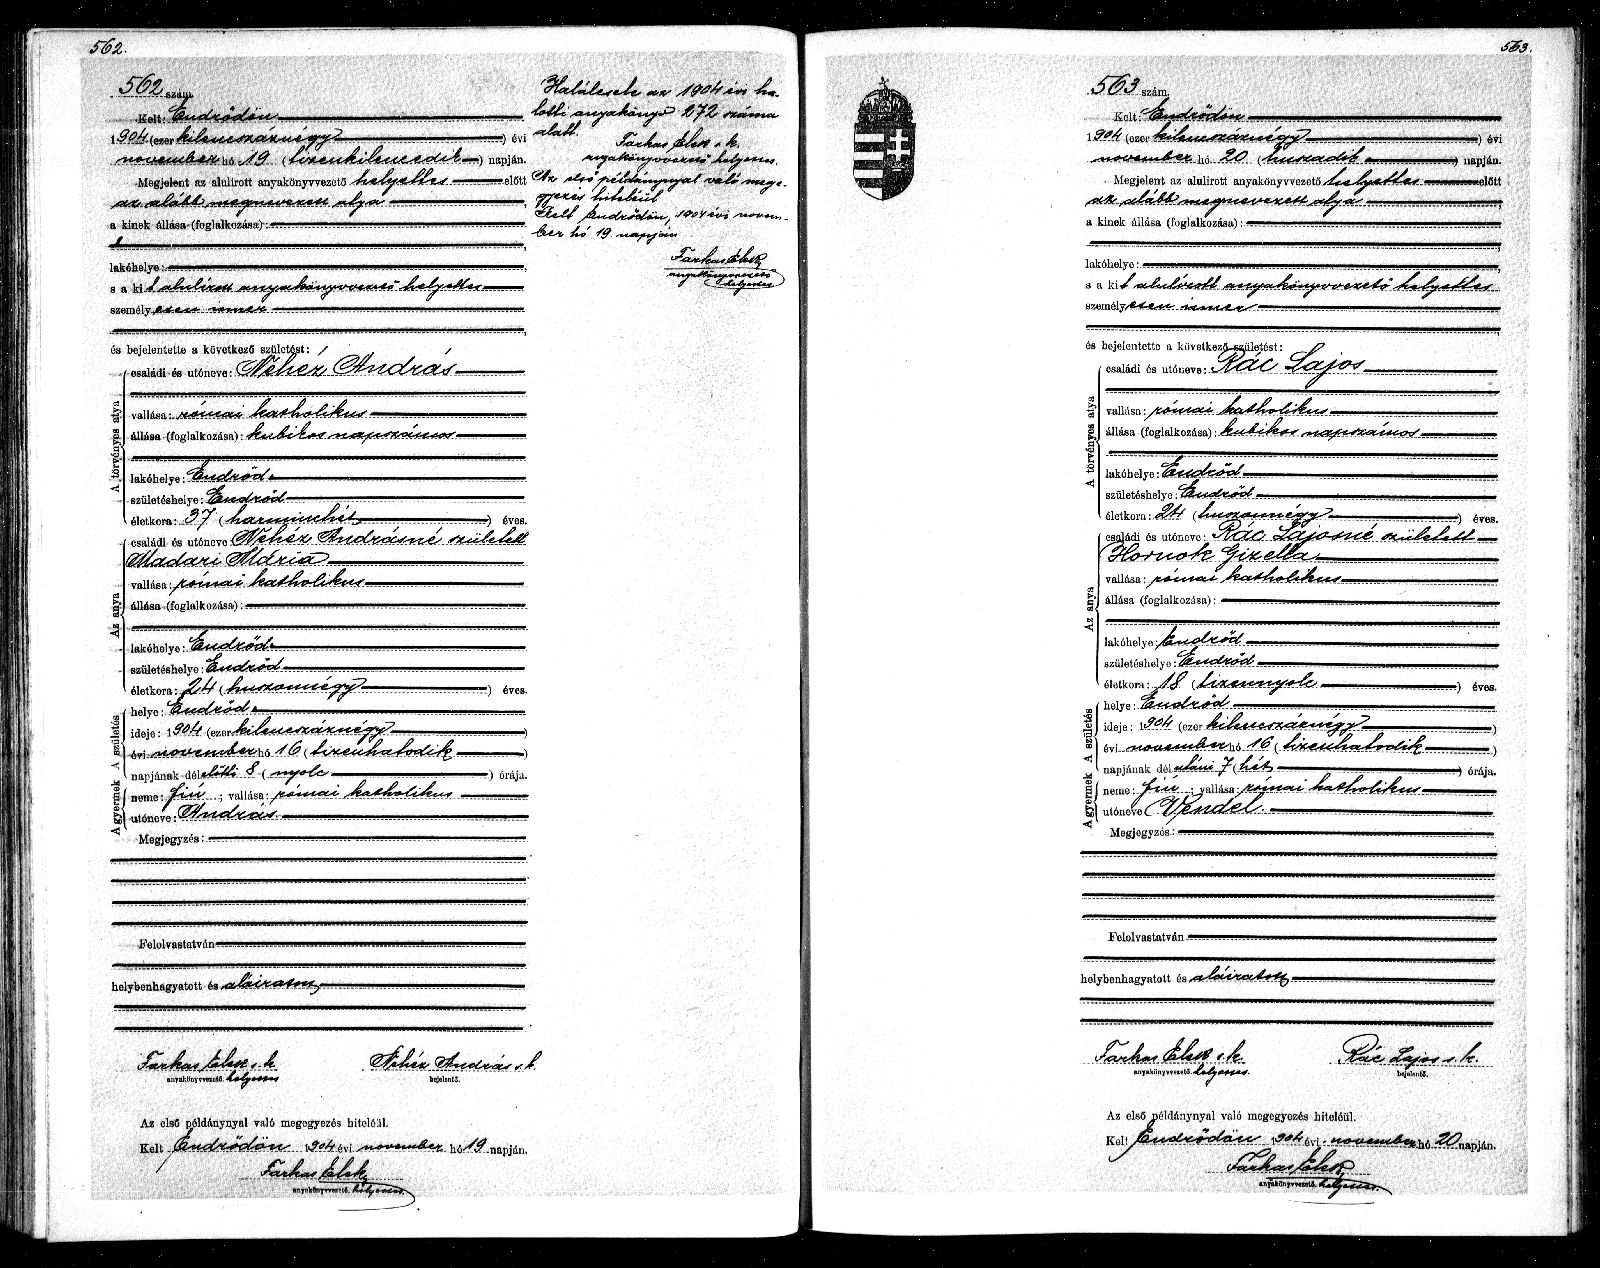 562.
562 szám.
Kelt: Endrődön
1904 (ezer kilencszáznégy) évi
november hó 19 (tizenkilencedik) napján.
Megjelent az alulirott anyakönyvvezető helyettes előtt
az alább megnevezett atya
a kinek állása (foglalkozása):
lakóhelye:
s a kit alulírott anyakönyvvezető helyettes
személyesen ismer
és bejelentette a következő születést:
A törvényes atya
családi és utóneve: Néhéz András
vallása: római katholikus
állása (foglalkozása): kubikos napszámos
lakóhelye: Endrőd
születéshelye: Endrőd
életkora: 37 (harminchét) éves.
Az anya
családi és utóneve: Néhéz Andrásné született
Madari Mária
vallása: római katholikus
állása (foglalkozása):
lakóhelye: Endrőd
születéshelye: Endrőd
életkora: 24 (huszonnégy) éves.
A születés
helye: Endrőd
ideje: 1904 (ezer kilencszáznégy)
évi november hó 16 (tizenhatodik)
napjának délelőtti 8 (nyolc) órája.
A gyermek
neme: fiú; vallása: római katholikus
utóneve: András
Megjegyzés:
Felolvastatván
helybenhagyatott és aláiratott
Farkas Elek s.k. Néhéz András s.k.
anyakönyvvezető. helyettes bejelentő.
Az első példánynyal való megegyezés hiteléül.
Kelt Endrődön 1904 évi november hó 19 napján.
Farkas Elek
anyakönyvvezető. helyettes.
Halálesete az 1904 évi ha-
lotti anyakönyv 272 száma
alatt.
Farkas Elek s.k.
anyakönyvvezető helyettes.
Az első példánynyal való mege-
gyezés hiteléül
Kelt Endrődön, 1904 évi novem-
ber hó 19. napján
Farkas Elek
anyakönyvvezető
helyettes
563.
563 szám.
Kelt: Endrődön
1904 (ezer kilencszáznégy) évi
november hó 20 (huszadik) napján.
Megjelent az alulirott anyakönyvvezető helyettes előtt
az alább megnevezett atya
a kinek állása (foglalkozása):
lakóhelye:
s a kit alulírott anyakönyvvezető helyettes
személyesen ismer
és bejelentette a következő születést:
A törvényes atya
családi és utóneve: Rác Lajos
vallása: római katholikus
állása (foglalkozása): kubikos napszámos
lakóhelye: Endrőd
születéshelye: Endrőd
életkora: 24 (huszonnégy) éves.
Az anya
családi és utóneve: Rác Lajosné született
Hornok Gizella
vallása: római katholikus
állása (foglalkozása):
lakóhelye: Endrőd
születéshelye: Endrőd
életkora: 18 (tizennyolc) éves.
A születés
helye: Endrőd
ideje: 1904 (ezer kilencszáznégy)
évi november hó 16 (tizenhatodik)
napjának délutáni 7 (hét) órája.
A gyermek
neme: fiú; vallása: római katholikus
utóneve Vendel.
Megjegyzés:
Felolvastatván
helybenhagyatott és aláiratott
Farkas Elek s.k. Rác Lajos s.k.
anyakönyvvezető. helyettes. bejelentő.
Az első példánynyal való megegyezés hiteléül.
Kelt Endrődön 1904 évi november hó 20 napján.
Farkas Elek
anyakönyvvezető. helyettes.